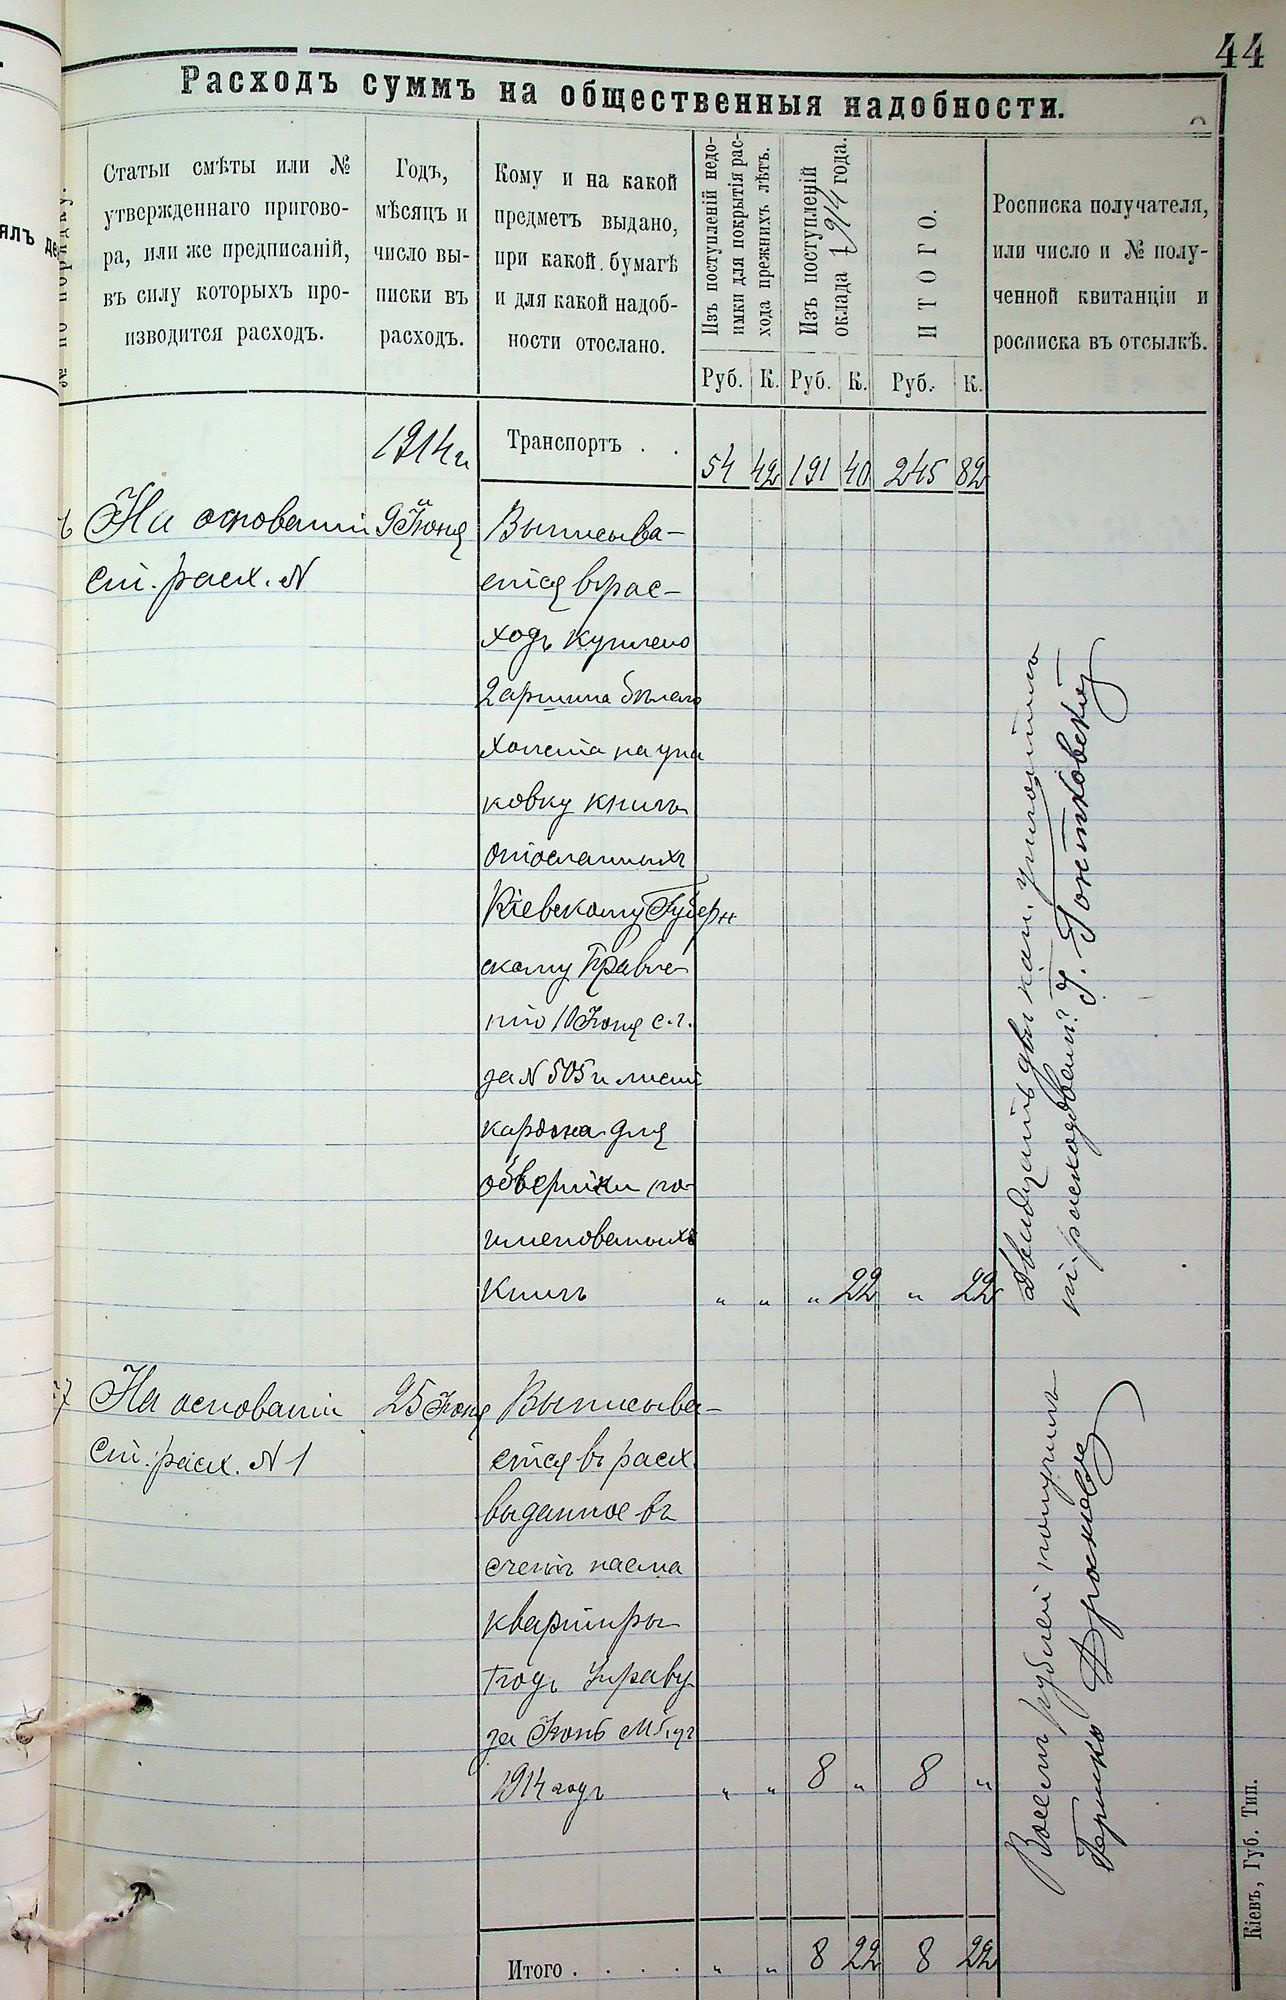 44
Расходъ суммъ на общественныя надобности.
№ по порядку.
Статьи смѣты или №
утвержденнаго пригово-
ра, или же предписаній,
въ силу которыхъ про-
изводится расходъ.
Годъ,
мѣсяцъ и
число вы-
писки въ
расходъ.
Кому и на какой
предметъ выдано,
при какой бумагѣ
и для какой надоб-
ности отослано.
Изъ поступленій недо-
имки для покрытія рас-
хода прежнихъ лѣтъ.
Изъ поступленій
оклада 1914 года.
ИТОГО.
Росписка получателя,
или число и № полу-
ченной квитанціи и
росписка въ отсылкѣ.
Руб. К. Руб. К. Руб. К.
1914 г. Транспортъ . . 54 42 191 40 245 82
6 На основаніи 9 Іюня Выписыва-
ст. расх. № ется врас-
ходъ куплено
2 аршина бѣлаго
холста на упа
ковку книгъ
отосланныхъ
Кіевскому Губерн
скому Правле-
нію 10 Іюня с.г.
за № 505 и листъ
кардона для
обвертки по-
именованыхъ
книгъ " " " 22 " 22
Двадцать двѣ коп. уплотилъ
Г. Гонтковскій
7 На основаніи 25 Іюня Выписыва-
ст. расх. № 1 ется въ расх.
выданное въ
счетъ наема
квартиры
подъ Управу
за Іюнь мѣ-цъ
1914 годъ " " 8 " 8 "
Восемь рублей получилъ
Итого . . . . " " 8 22 8 22
Кіевъ, Губ. Тип.